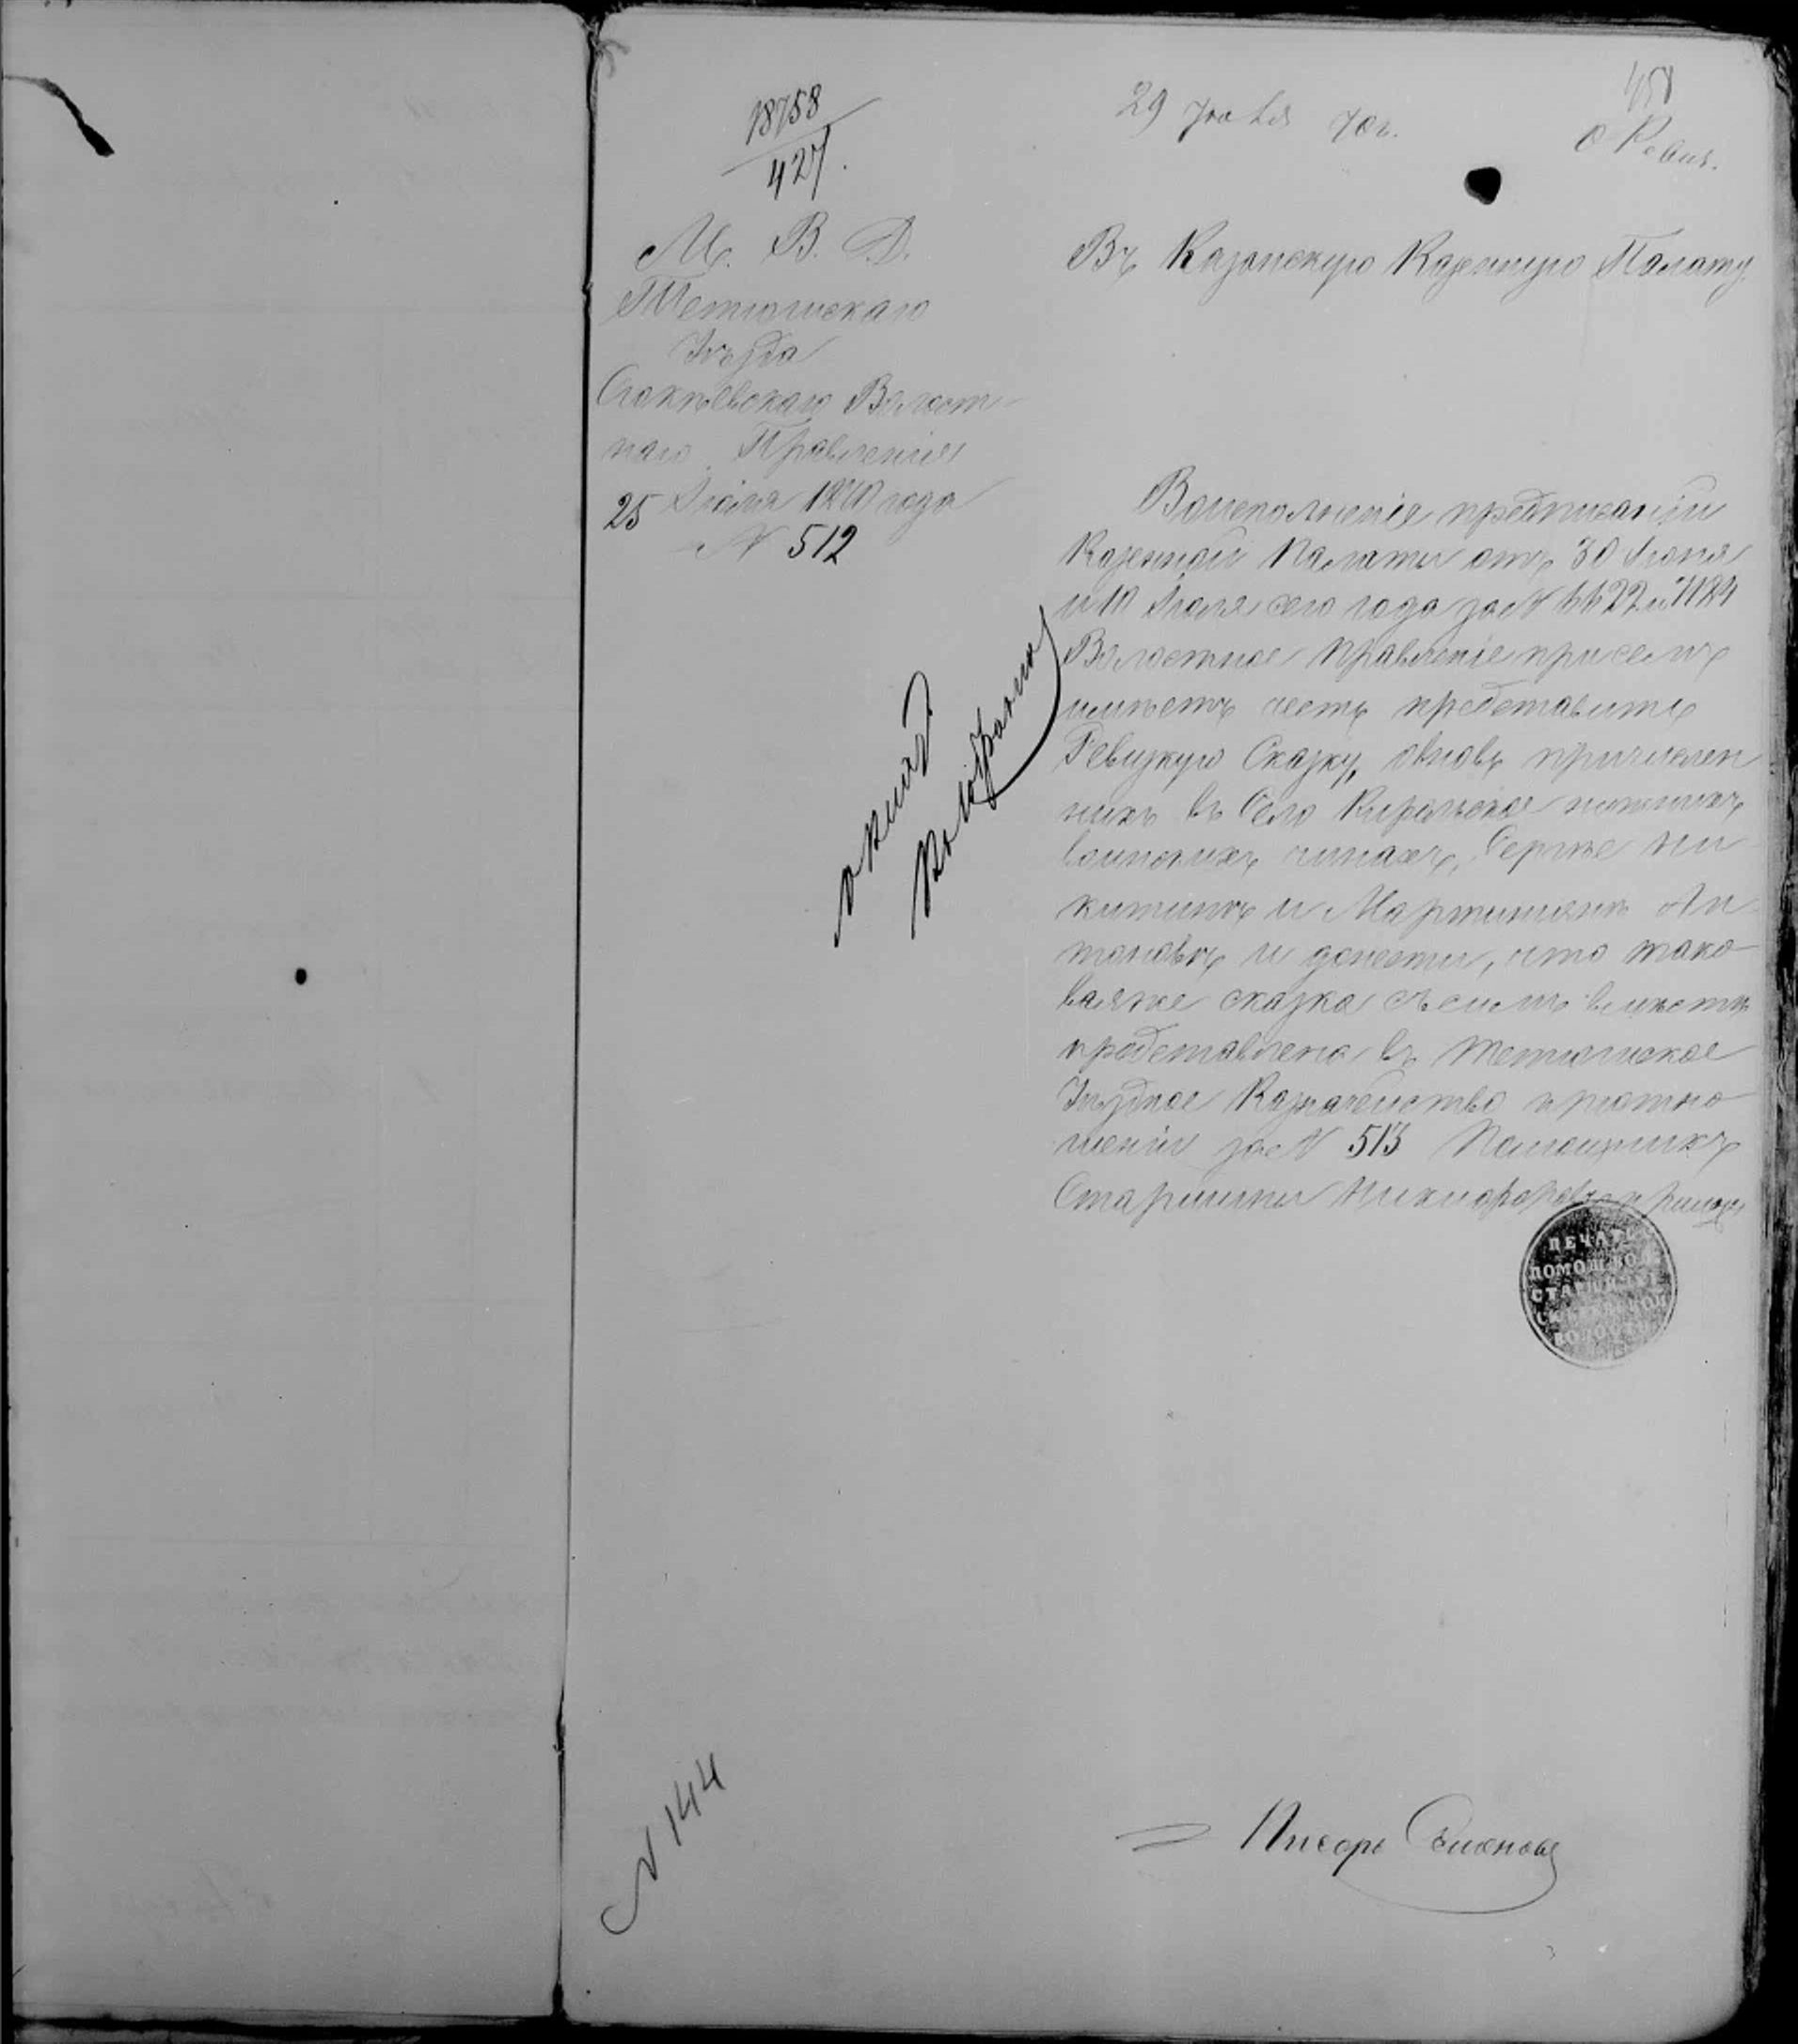 18758
427.
29 Июля 70 г.
458
О Ревиз.
М. В. Д.
Тетюшскаго
Уѣзда
Волост-
наго Правленія
25 Іюля 1870 года
N 512
Въ Казанскую Казенную Палату.
Воисполненіе предписаній
Казенной Палаты отъ 30 Іюня
и 10 Іюля сего года за N 6622 и 7184
Волостное Правленіе присемъ
имѣетъ честь представить
Ревизкую Сказку, овновь причислен
ныхъ въ Село Кирельское нижнихъ
воинскихъ чинахъ, Сергѣе Ни
китинѣ и Мартиніянѣ Ан
тоновѣ и донести, что тако
ваяже сказка съ симъ вмѣстѣ
представлена въ Тетюшское
Уѣздное Казначейство приотно
шеніи за N 513 Помощникъ
Старшины Никифоровъ
ПЕЧАТЬ
ПОМОЩ. ВОЛ.
СТАРШИНЫ
ВОЛОСТИ
Писарь Семеновъ
N 144